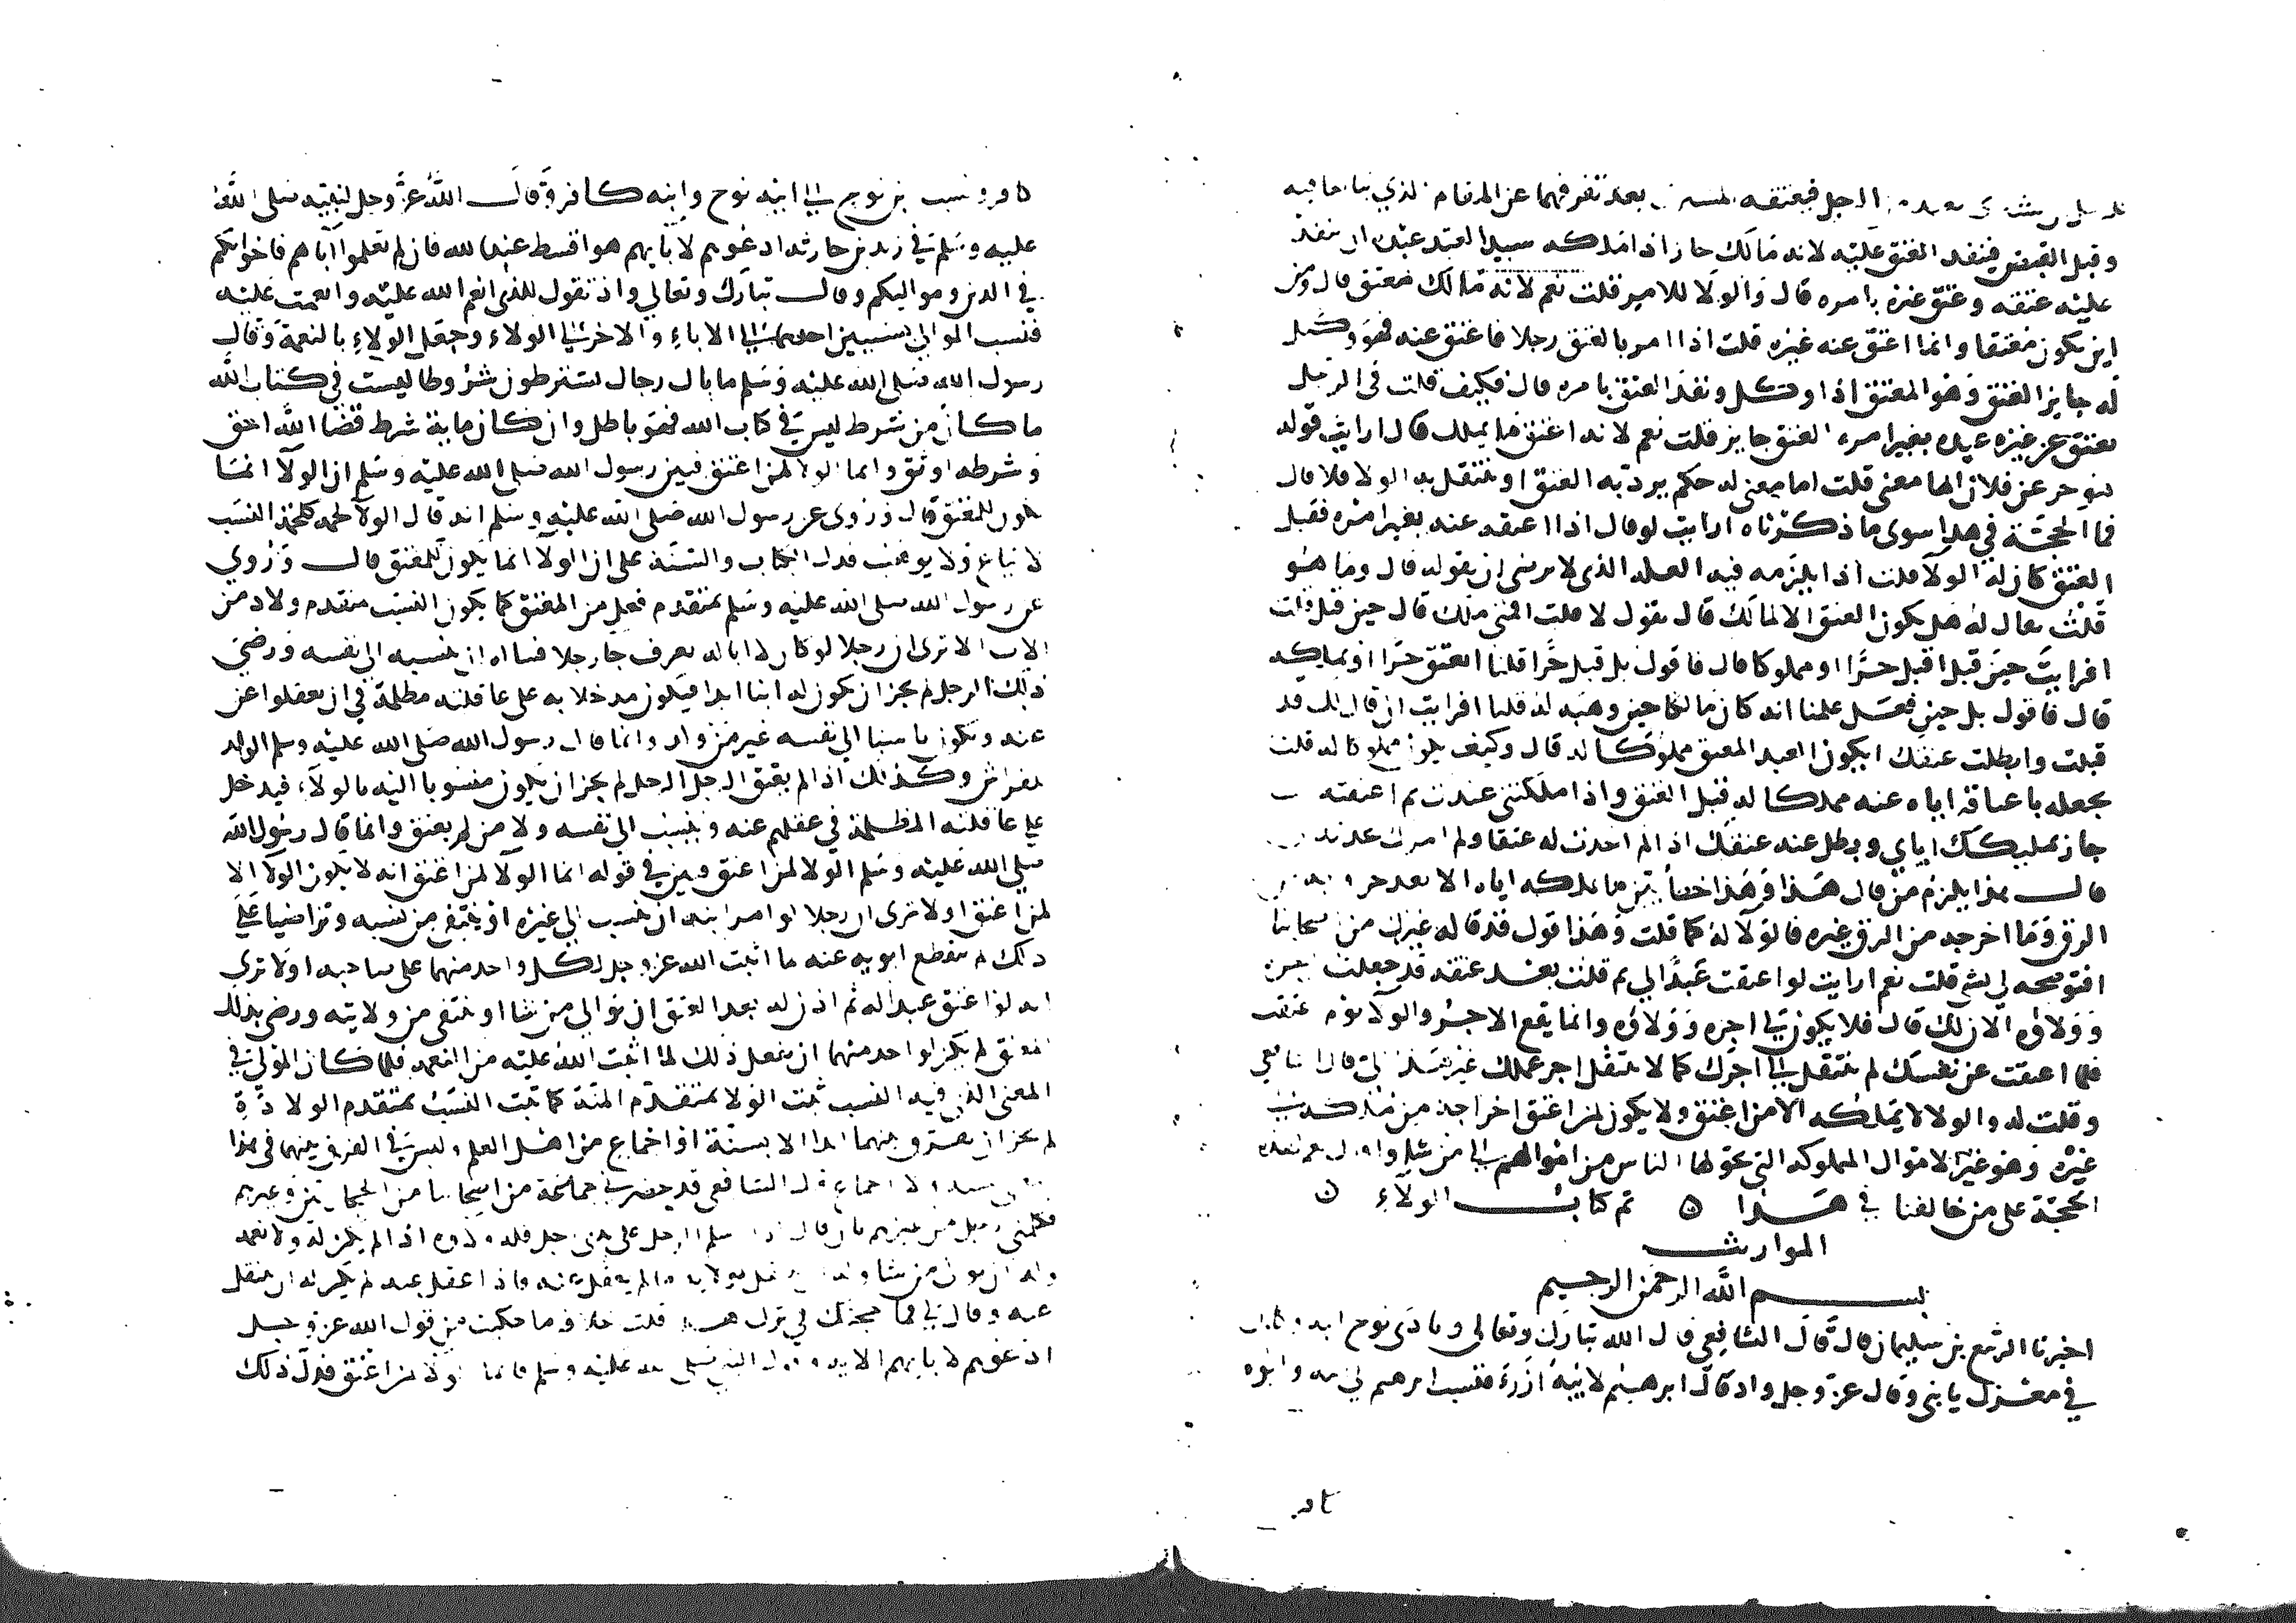 الرجل فيعتقه المشتري بعد تفرقهما عن المقام الذي تبايعا فيه
وقبل القبض فينفذ العتق عليه لانه مالك جاز اذا ملكه سبيل العبد عبده ان ينفذ
عليه عتقه وعتق غيره بامره قال والولا للامر قلت نعم لانه مالك معتق قال ومن
اين يكون معتقا وانما اعتق عنه غيره قلت اذا امر بالعتق رجلا فاعتق عنه فهو وكيل
له جايز العتق وهو المعتق اذا وكل ونفذ العتق بامره قال فكيف قلت في الرجل
يعتق عن غيره عبده بغير امره العتق جايز قلت نعم لانه اعتق ما يملك قال ارايت قوله
هو حر عن فلان الها معنى قلت اما معنى له حكم يرد به العتق او ينتقل به الولا فلا قال
فما الحجة في هذا سوى ما ذكرناه ارايت لو قال اذا اعتقه عنه بغير امره فقبل
العتق كان له الولا قلت اذا يلزمه فيه العله الذي لا نرضى ان نقوله قال وما هو
قلت يقال له هل يكون العتق الا لمالك قال يقول لا قلت فمتى ملك قال حين قبل قلت
افرايت حين قبل اقبل حرا او مملوكا قال فاقول بل قبل حرا قلنا افعتق حرا او يملكه
قال فاقول بل حين فعل علمنا انه كان مالكا حين وهبه له قلنا افرايت ان قال لك قد
قبلت وابطلت عتقك ايكون العبد المعتق مملوكا له قال وكيف يكون مملوكا له قلت
يجعله باعتاقه اياه عنه مملكا له قبل العتق واذا ملكتني عبدك ثم اعتقته
جاز تمليكك اياي وبطل عنه عتقك اذا لم احدث له عتقا ولم امرك
قال هذا يلزم من قال هذا وهذا خطأ بين ما ملكه اياه الا بعد خروجه من
الرق وما اخرجه من الرق غيره فالولا له كما قلت وهذا قول قد قاله غيرك من اصحابنا
افتوضحه لي بشي قلت نعم ارايت لو اعتقت عبدا لي ثم قلت بعد عتقه قد جعلت اجره
وولاؤه الان لك قال فلا يكون لي اجره وولاؤه وانما يقع الاجر والولا يوم عتقت
فلما اعتقت عن نفسك لم ينتقل لي اجرك كما لا ينتقل اجر عملك غير هذا لي قال الشافعي
وقلت له والولا لا يملكه الا من اعتق ولا يكون لمن اعتق اخراجه من ملكه الى
غيره وهو غير الاموال المملوكه التي يحولها الناس من اموالهم الى من شاوا
الحجة على من خالفنا في هذا ن تم كتاب الولاء ن
المواريث
بسم الله الرحمن الرحيم
اخبرنا الربيع بن سليمان قال قال الشافعي قال الله تبارك وتعالى ونادى نوح ابنه وكان
في معزل يا بني وقال عز وجل واذ قال ابرهيم لابيه ازر فنسب ابرهيم الى ابيه وابوه
كافر
كافر ونسب بن نوح الى ابيه نوح وابنه كافر وقال الله عز وجل لنبيه صلى الله
عليه وسلم في زيد بن حارثه ادعوهم لابايهم هو اقسط عند الله فان لم تعلموا اباهم فاخوانكم
في الدين ومواليكم وقال تبارك وتعالى واذ تقول للذي انعم الله عليه وانعمت عليه
فنسب الموالي نسبين احدهما الى الاباء والاخر الى الولاء وجعل الولاء بالنعمة وقال
رسول الله صلى الله عليه وسلم ما بال رجال يشترطون شروطا ليست في كتاب الله
ما كان من شرط ليس في كتاب الله فهو باطل وان كان ماية شرط قضا الله احق
وشرطه اوثق وانما الولا لمن اعتق فبين رسول الله صلى الله عليه وسلم ان الولا انما
يكون للمعتق قال وروى عن رسول الله صلى الله عليه وسلم انه قال الولا لحمه كلحمة النسب
لا يباع ولا يوهب فدل الكتاب والسنة على ان الولا انما يكون للمعتق قال وروي
عن رسول الله صلى الله عليه وسلم بمتقدم فعل من المعتق كما يكون النسب بمتقدم ولاد من
الاب الا ترى ان رجلا لو كان لا ابا له يعرف جا رجلا فساله ان ينسبه الى نفسه ورضي
ذلك الرجل لم يجز ان يكون له ابنا ابدا فيكون مدخلا به على عاقلته مظلمة في ان يعقلوا عن
عنه ويكون ناسبا الى نفسه غير من ولد وانما قال رسول الله صلى الله عليه وسلم الولد
للفراش وكذلك اذا لم يعتق الرجل الرجل لم يجز ان يكون منسوبا اليه بالولاء فيدخل
على عاقلته المظلمة في عقلهم عنه وينسب الى نفسه ولا من لم يعتق وانما قال رسول الله
صلى الله عليه وسلم الولا لمن اعتق وبين في قوله انما الولا لمن اعتق انه لا يكون الولا الا
لمن اعتق اولا ترى ان رجلا لو امر ابنه ان ينسب الى غيره او ينتفي من نسبه وتراضيا على
ذلك لم تنقطع ابوته عنه ما اثبت الله عز وجل لكل واحد منهما على صاحبه اولا ترى
انه لو اعتق عبدا له ثم اذن له بعد العتق ان يوالي من شا او ينتفي من ولايته ورضي بذلك
المعتق لم يكن لواحد منهما ان يفعل ذلك لما اثبت الله عليه من النعمه فلما كان المولى في
المعنى الذي فيه النسب ثبت الولا بمتقدم المنة كما ثبت النسب بمتقدم الولادة
لم يجز ان يفترق بينهما ابدا الا بسنة او اجماع من اهل العلم وليس في الفرق بينهما في هذا
سنه ولا اجماع قال الشافعي قد حضرني جماعة من اصحابنا من الحجازيين وغيرهم
فكلمني رجل من غيرهم بان قال اذا اسلم الرجل على يدي رجل فله ولاوه اذا لم يكن له ولا نعمه
وله ان يوالي من شا وله ان ينتقل بولايه ما لم يعقل عنه فاذا عقل عنه لم يكن له ان ينتقل
عنه وقال لي فما حجتك في ترك هذا قلت خلافه ما حكيت من قول الله عز وجل
ادعوهم لابايهم الايه وقول النبي صلى الله عليه وسلم فانما الولا لمن اعتق فدل ذلك